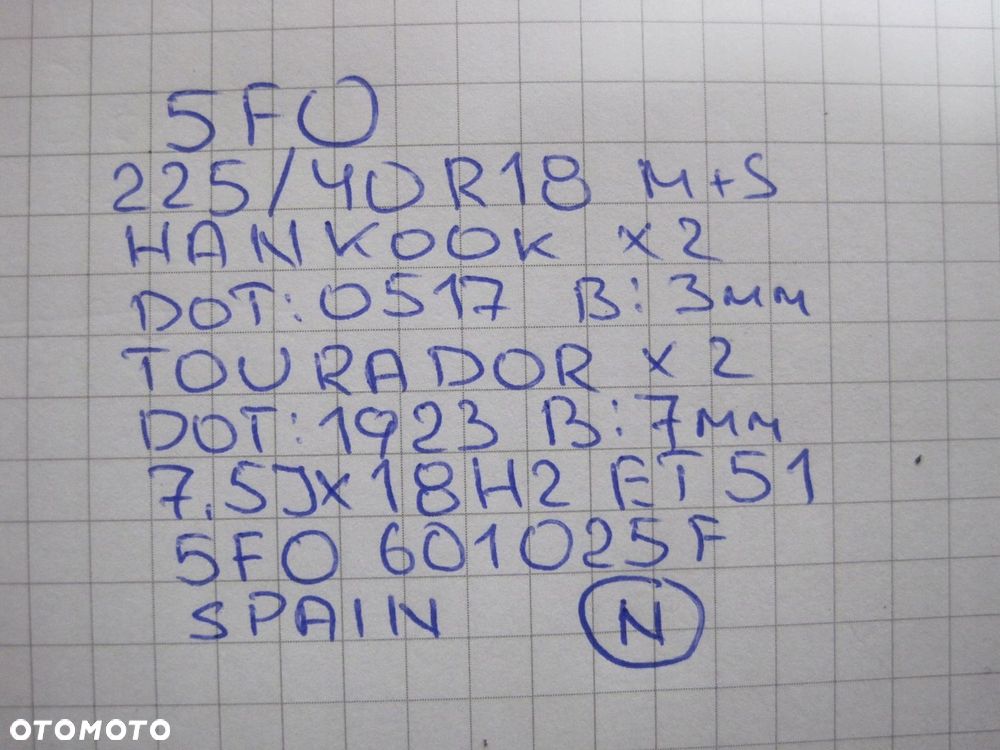 5FO
225/40R18 M+S
HANKOOK x2
DOT:0517 B:3mm
TOURADOR x2
DOT:1923 B:7mm
7.5Jx18H2 ET51
5FO 601025F
SPAIN N
OTOMOTO